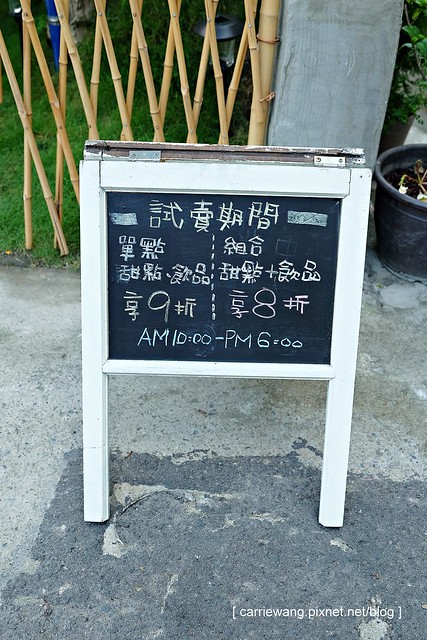 試賣期間
單點
甜點·飲品
享9折
組合
甜點+飲品
享8折
AM10:00-PM6:00
[ carriewang.pixnet.net/blog ]